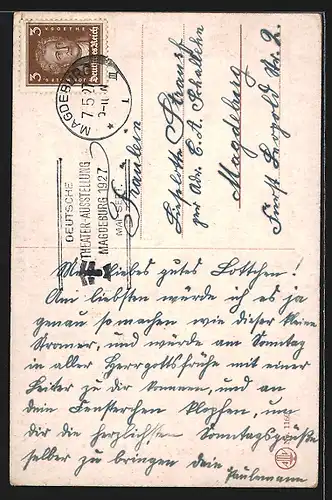 3 J. W. GOETHE 3
Deutsches Reich
MAGDEBURG
7.5.27
DEUTSCHE
THEATER-AUSSTELLUNG
MAGDEBURG 1927
MAI
Fräulein
Liselotte
per Adr. E. A.
Magdeburg
Fürst Leopold Str. 2.
Mein liebes gutes Lottchen!
Am liebsten würde ich es ja
genau so machen wie dieser kleine
Stromer, und würde am Sonntag
in aller Herrgottsfrühe mit einer
Leiter zu dir kommen, und an
dein Fensterchen klopfen, um
dir die herzlichsten Sonntagsgrüße
selber zu bringen dein
Paulemann